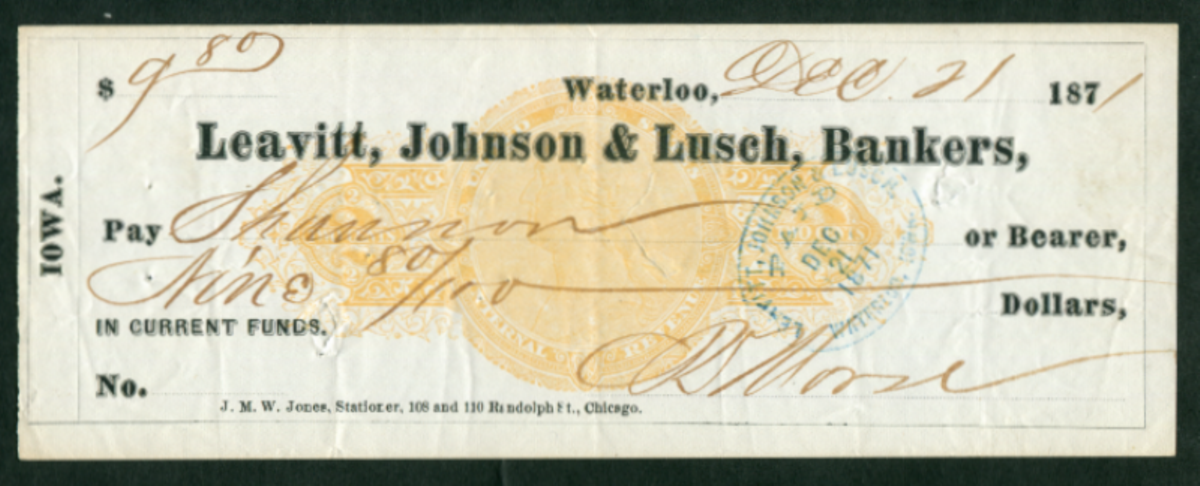 $ 9 80 Waterloo, Dec. 21 1871
Leavitt, Johnson & Lusch, Bankers,
IOWA.
Pay Shannon or Bearer,
Nine 80/100 Dollars,
IN CURRENT FUNDS.
Morse
No.
J. M. W. Jones, Stationer, 108 and 110 Randolph St., Chicago.
LEAVITT, JOHNSON & LUSCH,
PAID
DEC
21
1871
WATERLOO, IOWA
INTERNAL REVENUE